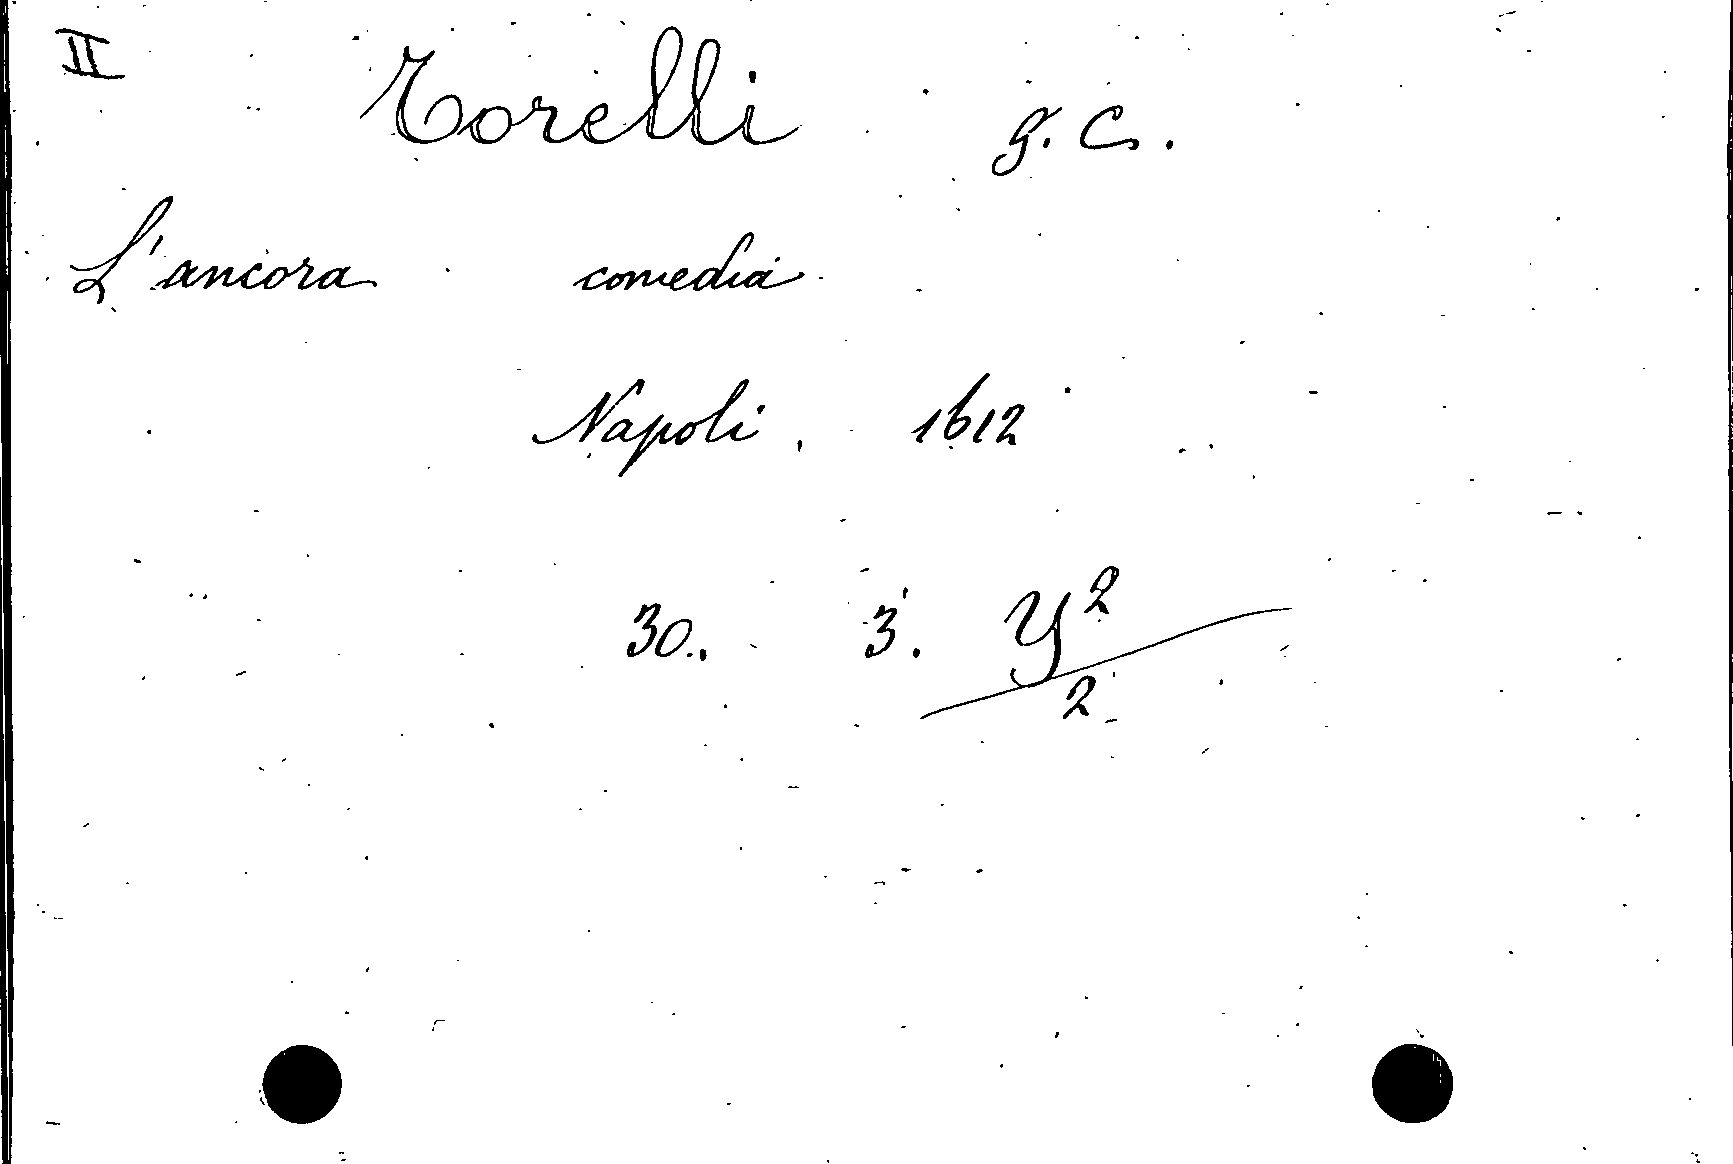 II
Torelli G. C.
L'ancora comedia
Napoli, 1612
30. 3. Y²
2